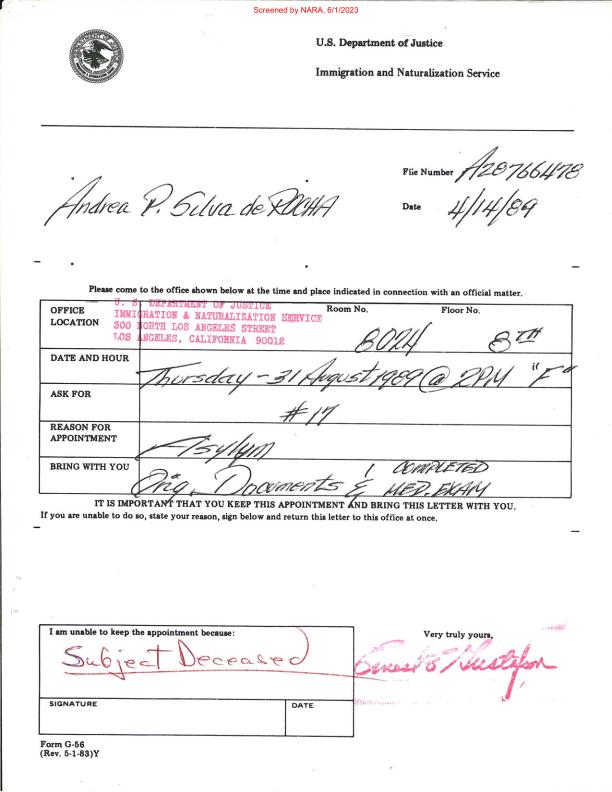 Screened by NARA, 6/1/2023
U.S. Department of Justice
Immigration and Naturalization Service
File Number A28766478
Andrea P. Silva de ROCHA
Date 4/14/89
Please come to the office shown below at the time and place indicated in connection with an official matter.
OFFICE LOCATION
U. S. DEPARTMENT OF JUSTICE
IMMIGRATION & NATURALIZATION SERVICE
300 NORTH LOS ANGELES STREET
LOS ANGELES, CALIFORNIA 90012
Room No. 8024
Floor No. 8TH
DATE AND HOUR
Thursday - 31 August 1989 @ 2PM "F"
ASK FOR
#17
REASON FOR APPOINTMENT
Asylum
BRING WITH YOU
Orig. Documents & 1 COMPLETED MED. EXAM
IT IS IMPORTANT THAT YOU KEEP THIS APPOINTMENT AND BRING THIS LETTER WITH YOU.
If you are unable to do so, state your reason, sign below and return this letter to this office at once.
I am unable to keep the appointment because:
Subject Deceased
Very truly yours,
Ernest E Gustafson
SIGNATURE
DATE
Form G-56
(Rev. 5-1-83)Y